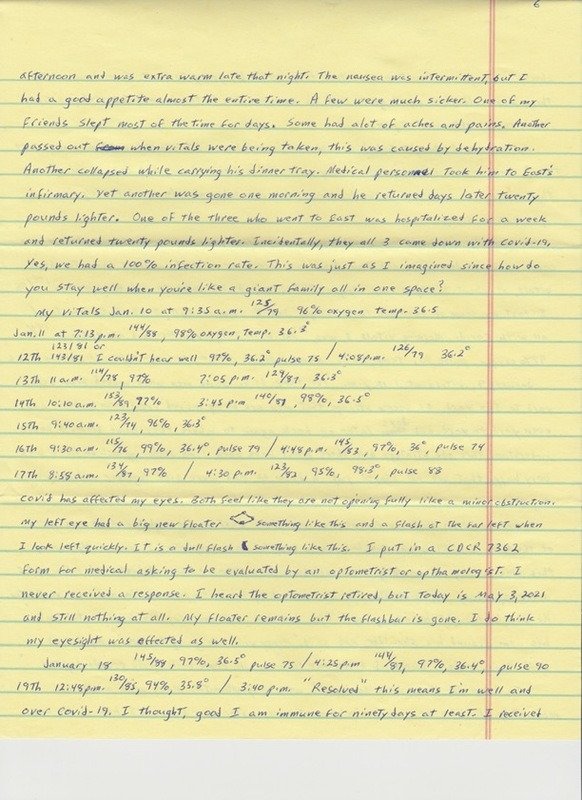 6
afternoon and was extra warm late that night. The nausea was intermittent, but I
had a good appetite almost the entire time. A few were much sicker. One of my
friends slept most of the time for days. Some had alot of aches and pains. Another
passed out when vitals were being taken, this was caused by dehydration.
Another collapsed while carrying his dinner tray. Medical personnel took him to East's
infirmary. Yet another was gone one morning and he returned days later twenty
pounds lighter. One of the three who went to East was hospitalized for a week
and returned twenty pounds lighter. Incidentally, they all 3 came down with Covid-19,
Yes, we had a 100% infection rate. This was just as I imagined since how do
you stay well when you're like a giant family all in one space?
My vitals Jan. 10 at 9:35 a.m. 125/79 96% oxygen temp. 36.5
Jan. 11 at 7:13 p.m. 144/88, 98% oxygen, temp. 36.3°
123/81 or
12th 143/81 I couldn't hear well 97%, 36.2° pulse 75 / 4:08 p.m. 126/79 36.2°
13th 11 a.m. 114/78, 97% 7:05 p.m. 129/87, 36.3°
14th 10:10 a.m. 153/89, 97% 3:45 p.m 140/81, 98%, 36.5°
15th 9:40 a.m. 123/74, 96%, 36.3°
16th 9:30 a.m. 115/76, 99%, 36.4°, pulse 79 / 4:48 p.m. 145/83, 97%, 36°, pulse 74
17th 8:58 a.m. 134/87, 97% / 4:30 p.m. 123/82, 95%, 98.3°, pulse 88
Covid has affected my eyes. Both feel like they are not opening fully like a minor obstruction.
My left eye had a big new floater something like this and a flash at the far left when
I look left quickly. It is a dull flash something like this. I put in a CDCR 7362
form for medical asking to be evaluated by an optometrist or opthamologist. I
never received a response. I heard the optometrist retired, but today is May 3, 2021
and still nothing at all. My floater remains but the flashbar is gone. I do think
my eyesight was effected as well.
January 18 145/88, 97%, 36.5° pulse 75 / 4:25 p.m 144/87, 97%, 36.4°, pulse 90
19th 12:48 p.m. 130/85, 94%, 35.8° / 3:40 p.m. "Resolved" this means I'm well and
over Covid-19. I thought, good I am immune for ninety days at least. I received